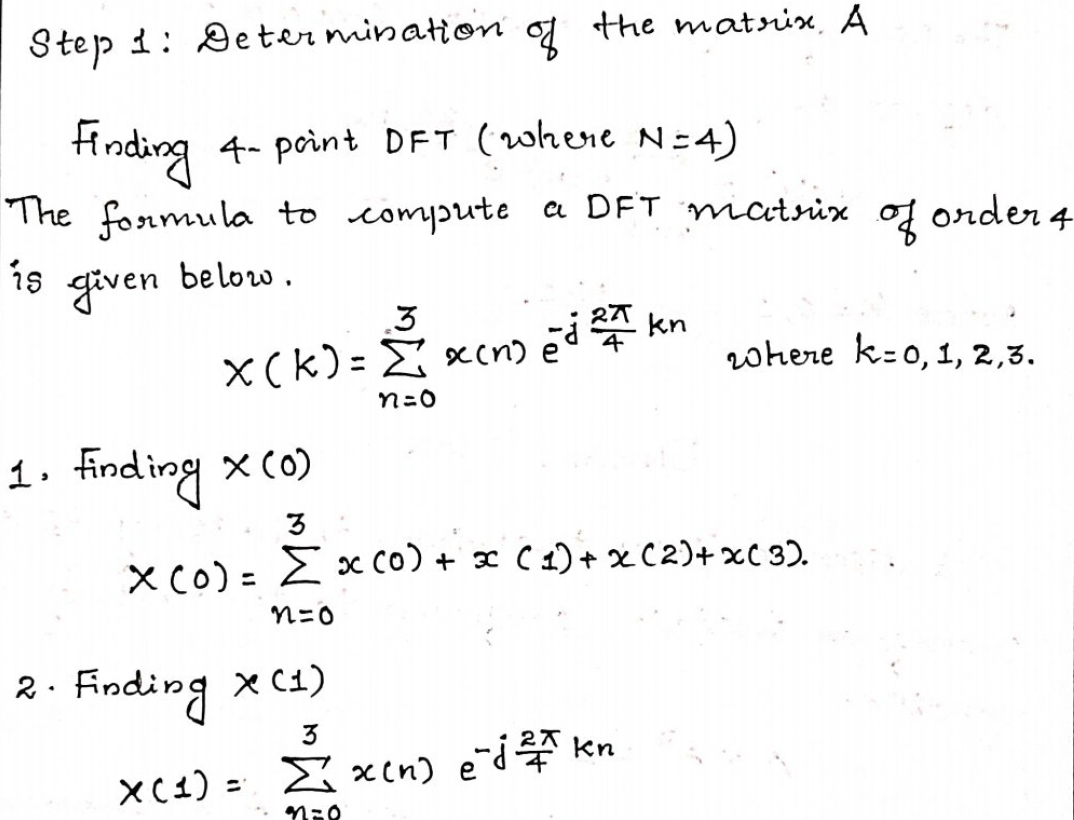 Step 1: Determination of the matrix A
Finding 4-point DFT (where N=4)
The formula to compute a DFT matrix of order 4
is given below.
X(k) = ∑_{n=0}^{3} x(n) e^{-j 2π/4 kn} where k=0, 1, 2, 3.
1. Finding X(0)
X(0) = ∑_{n=0}^{3} x(0) + x(1) + x(2) + x(3).
2. Finding X(1)
X(1) = ∑_{n=0}^{3} x(n) e^{-j 2π/4 kn}